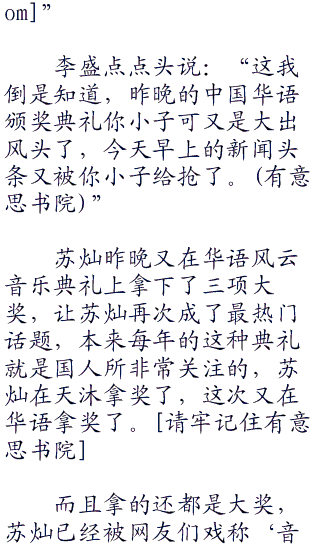 om]”
李盛点点头说：“这我
倒是知道，昨晚的中国华语
颁奖典礼你小子可又是大出
风头了，今天早上的新闻头
条又被你小子给抢了。(有意
思书院)”
苏灿昨晚又在华语风云
音乐典礼上拿下了三项大
奖，让苏灿再次成了最热门
话题，本来每年的这种典礼
就是国人所非常关注的，苏
灿在天沐拿奖了，这次又在
华语拿奖了。[请牢记住有意
思书院]
而且拿的还都是大奖，
苏灿已经被网友们戏称‘音